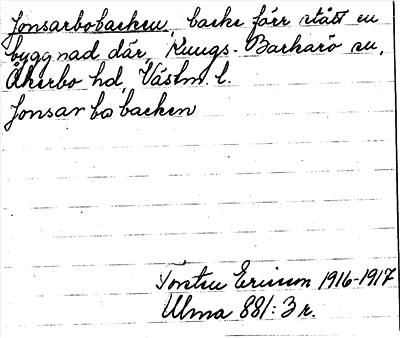 Jonsarbobacken, backe förr stått en
byggnad där, Kungs-Barkarö sn,
Åkerbo hd, Västm. l.
Jonsarbobacken
Torsten Ericson 1916-1917
Ulma 881:3 r.